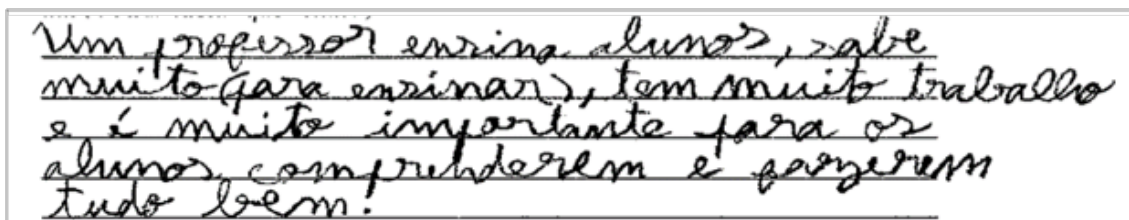 Um professor ensina alunos, sabe
muito (para ensinar), tem muito trabalho
e é muito importante para os
alunos comprenderem e fazerem
tudo bem!